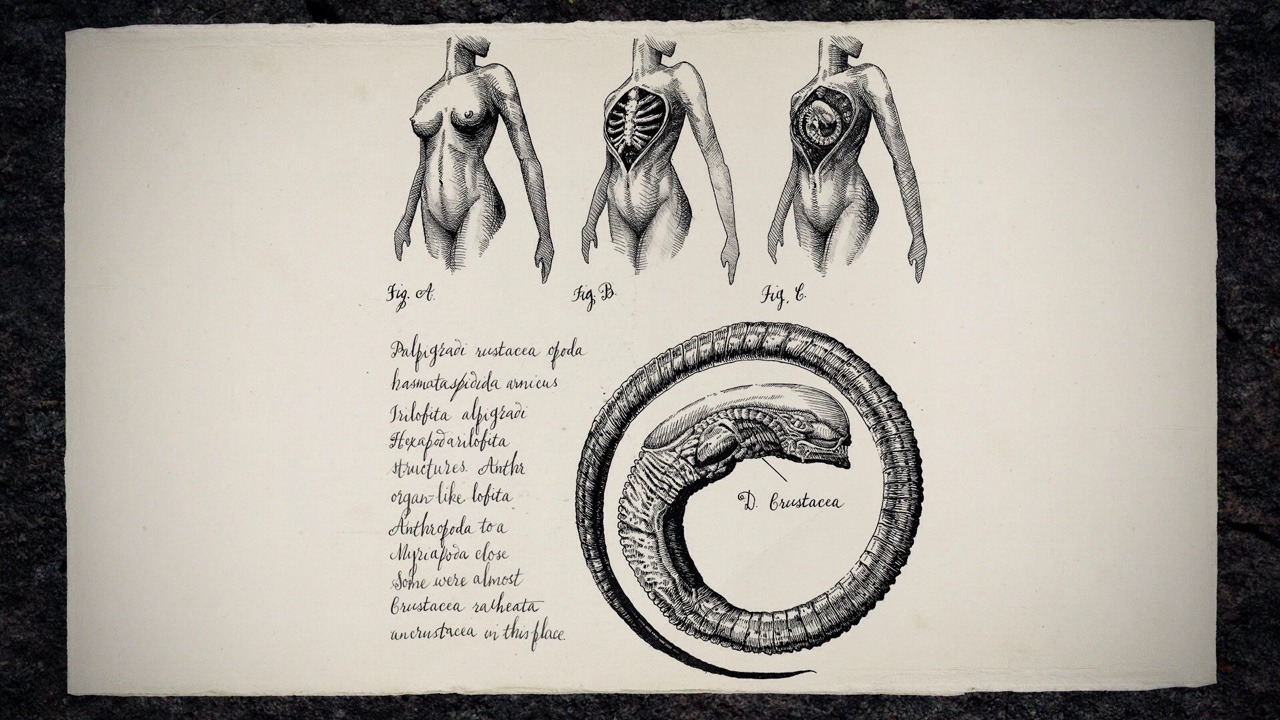 Fig. A.
Fig. B.
Fig. C.
Palpigradi crustacea opoda
hasmataspidida arnicus
Trilofita alpigradi
Hexapodarilofita
structures. Anthr
organ-like lofita
Anthropoda to a
Myriapoda close
Some were almost
Crustacea
uncrustacea in this place.
D. Crustacea